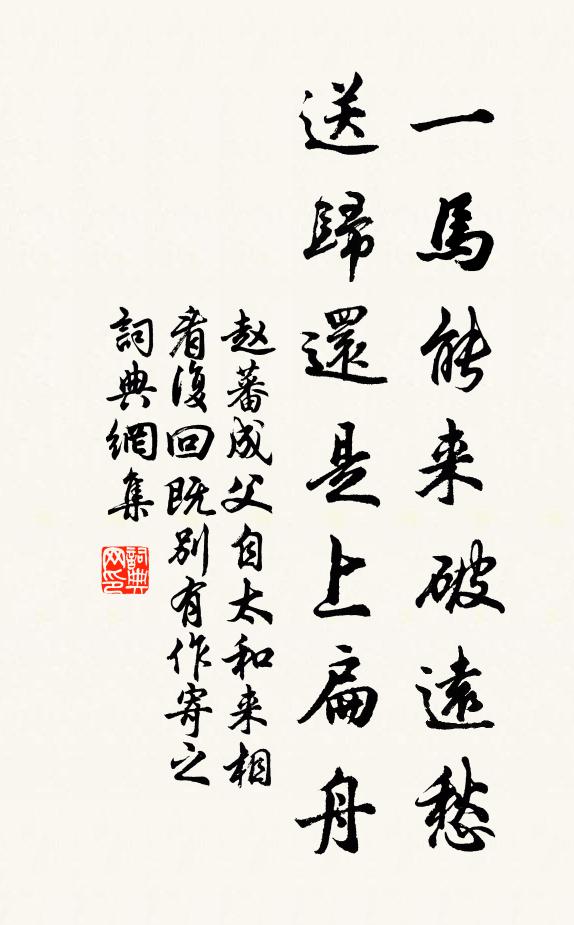 一馬能来破遠愁
送歸還是上扁舟
赵蕃成父自太和来相
看復回既别有作寄之
詞典網集
詞典网印